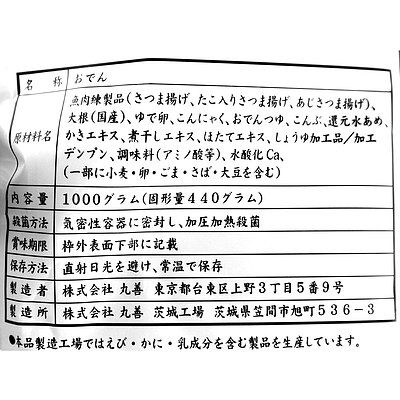 名 称 おでん
原材料名 魚肉練製品(さつま揚げ、たこ入りさつま揚げ、あじさつま揚げ)、
大根(国産)、ゆで卵、こんにゃく、おでんつゆ、こんぶ、還元水あめ、
かきエキス、煮干しエキス、ほたてエキス、しょうゆ加工品/加工
デンプン、調味料(アミノ酸等)、水酸化Ca、
(一部に小麦・卵・ごま・さば・大豆を含む)
内容量 1000グラム(固形量440グラム)
殺菌方法 気密性容器に密封し、加圧加熱殺菌
賞味期限 枠外表面下部に記載
保存方法 直射日光を避け、常温で保存
製造者 株式会社 丸善 東京都台東区上野3丁目5番9号
製造所 株式会社 丸善 茨城工場 茨城県笠間市旭町536-3
●本品製造工場ではえび・かに・乳成分を含む製品を生産しています。